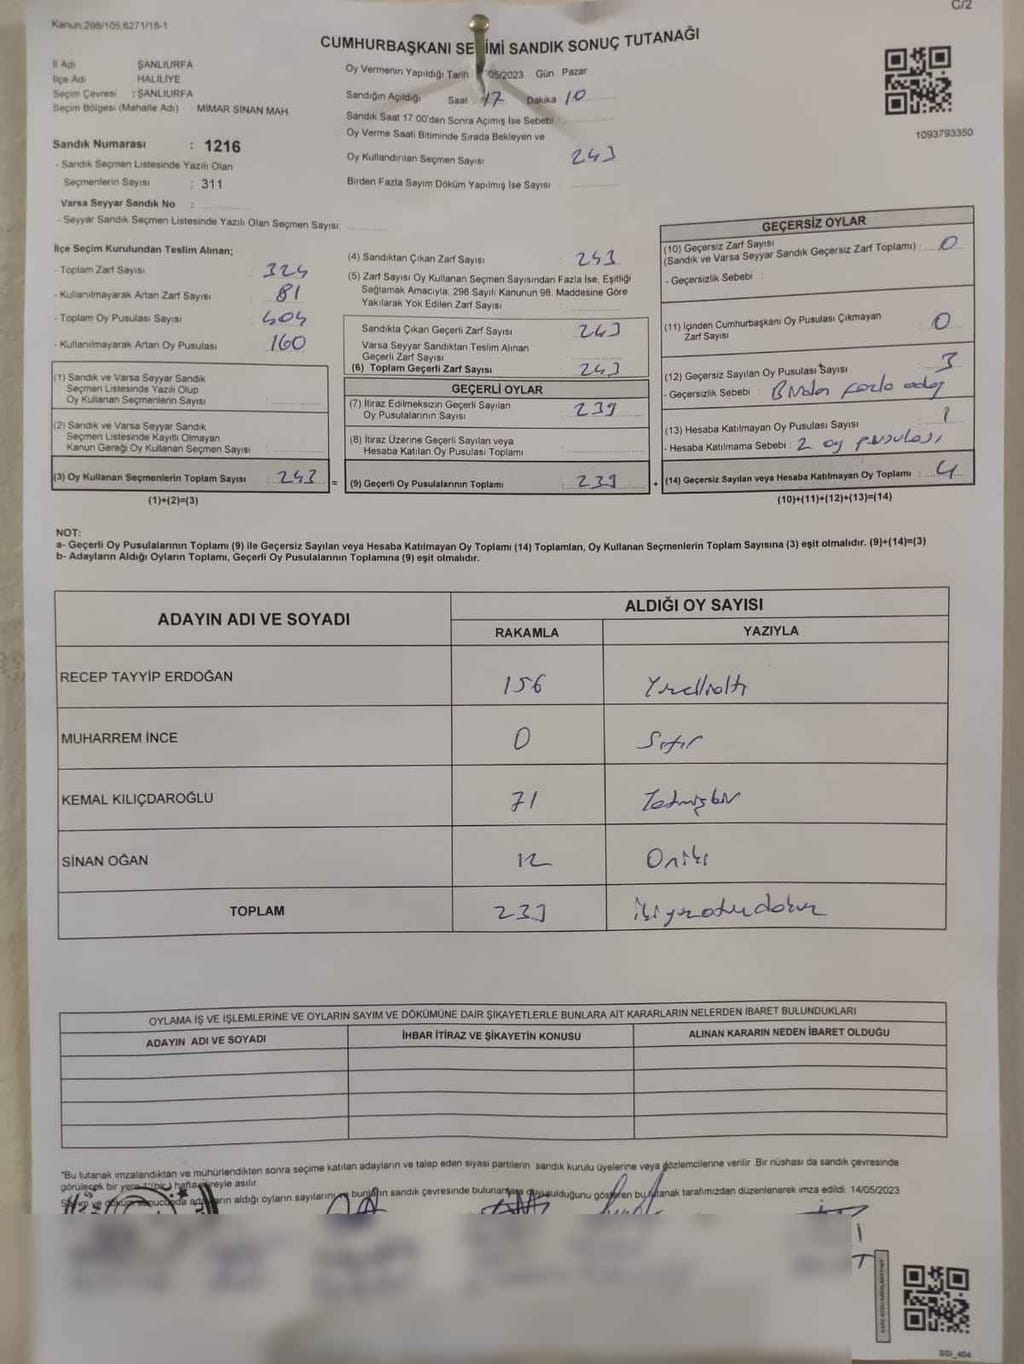 Kanun:298/105,6271/18-1
C/2
CUMHURBAŞKANI SE İMİ SANDIK SONUÇ TUTANAĞI
İl Adı : ŞANLIURFA
İlçe Adı : HALİLİYE
Seçim Çevresi : ŞANLIURFA
Seçim Bölgesi (Mahalle Adı) : MİMAR SİNAN MAH.
Sandık Numarası : 1216
- Sandık Seçmen Listesinde Yazılı Olan
Seçmenlerin Sayısı : 311
Varsa Seyyar Sandık No :
- Seyyar Sandık Seçmen Listesinde Yazılı Olan Seçmen Sayısı:
Oy Vermenin Yapıldığı Tarih 05/2023 Gün : Pazar
Sandığın Açıldığı Saat : 17 Dakika 10
Sandık Saat 17.00'den Sonra Açımış İse Sebebi
Oy Verme Saati Bitiminde Sırada Bekleyen ve
Oy Kullandırılan Seçmen Sayısı 243
Birden Fazla Sayım Döküm Yapılmış İse Sayısı
1093793350
İlçe Seçim Kurulundan Teslim Alınan;
- Toplam Zarf Sayısı 324
- Kullanılmayarak Artan Zarf Sayısı 81
- Toplam Oy Pusulası Sayısı 404
- Kullanılmayarak Artan Oy Pusulası 160
(1) Sandık ve Varsa Seyyar Sandık
Seçmen Listesinde Yazılı Olup
Oy Kullanan Seçmenlerin Sayısı
(2) Sandık ve Varsa Seyyar Sandık
Seçmen Listesinde Kayıtlı Olmayan
Kanun Gereği Oy Kullanan Seçmen Sayısı
(3) Oy Kullanan Seçmenlerin Toplam Sayısı : 243 =
(1)+(2)=(3)
(4) Sandıktan Çıkan Zarf Sayısı 243
(5) Zarf Sayısı Oy Kullanan Seçmen Sayısından Fazla İse, Eşitliği
Sağlamak Amacıyla, 298 Sayılı Kanunun 98. Maddesine Göre
Yakılarak Yok Edilen Zarf Sayısı
Sandıkta Çıkan Geçerli Zarf Sayısı 243
Varsa Seyyar Sandıktan Teslim Alınan
Geçerli Zarf Sayısı
(6) Toplam Geçerli Zarf Sayısı 243
GEÇERLİ OYLAR
(7) İtiraz Edilmeksizin Geçerli Sayılan
Oy Pusulalarının Sayısı 239
(8) İtiraz Üzerine Geçerli Sayılan veya
Hesaba Katılan Oy Pusulası Toplamı
(9) Geçerli Oy Pusulalarının Toplamı 239 +
GEÇERSİZ OYLAR
(10) Geçersiz Zarf Sayısı
(Sandık ve Varsa Seyyar Sandık Geçersiz Zarf Toplamı) : 0
- Geçersizlik Sebebi :
(11) İçinden Cumhurbaşkanı Oy Pusulası Çıkmayan
Zarf Sayısı 0
(12) Geçersiz Sayılan Oy Pusulası Sayısı 3
- Geçersizlik Sebebi : Birden fazla aday
(13) Hesaba Katılmayan Oy Pusulası Sayısı 1
- Hesaba Katılmama Sebebi : 2 oy pusulası
(14) Geçersiz Sayılan veya Hesaba Katılmayan Oy Toplamı 4
(10)+(11)+(12)+(13)=(14)
NOT:
a- Geçerli Oy Pusulalarının Toplamı (9) ile Geçersiz Sayılan veya Hesaba Katılmayan Oy Toplamı (14) Toplamları, Oy Kullanan Seçmenlerin Toplam Sayısına (3) eşit olmalıdır. (9)+(14)=(3)
b- Adayların Aldığı Oyların Toplamı, Geçerli Oy Pusulalarının Toplamına (9) eşit olmalıdır.
ADAYIN ADI VE SOYADI
ALDIĞI OY SAYISI
RAKAMLA YAZIYLA
RECEP TAYYİP ERDOĞAN 156 Yüzellialtı
MUHARREM İNCE 0 Sıfır
KEMAL KILIÇDAROĞLU 71 Yetmişbir
SİNAN OĞAN 12 Oniki
TOPLAM 239 ikiyüzotuzdokuz
OYLAMA İŞ VE İŞLEMLERİNE VE OYLARIN SAYIM VE DÖKÜMÜNE DAİR ŞİKAYETLERLE BUNLARA AİT KARARLARIN NELERDEN İBARET BULUNDUKLARI
ADAYIN ADI VE SOYADI İHBAR İTİRAZ VE ŞİKAYETİN KONUSU ALINAN KARARIN NEDEN İBARET OLDUĞU
"Bu tutanak imzalandıktan ve mühürlendikten sonra seçime katılan adayların ve talep eden siyasi partilerin sandık kurulu üyelerine veya gözlemcilerine verilir. Bir nüshası da sandık çevresinde
görülecek bir yere 1 (bir) hafta süreyle asılır.
aldığı oyların sayılarını bunların sandık çevresinde olduğunu gösteren bu tutanak tarafımızdan düzenlenerek imza edildi. 14/05/2023